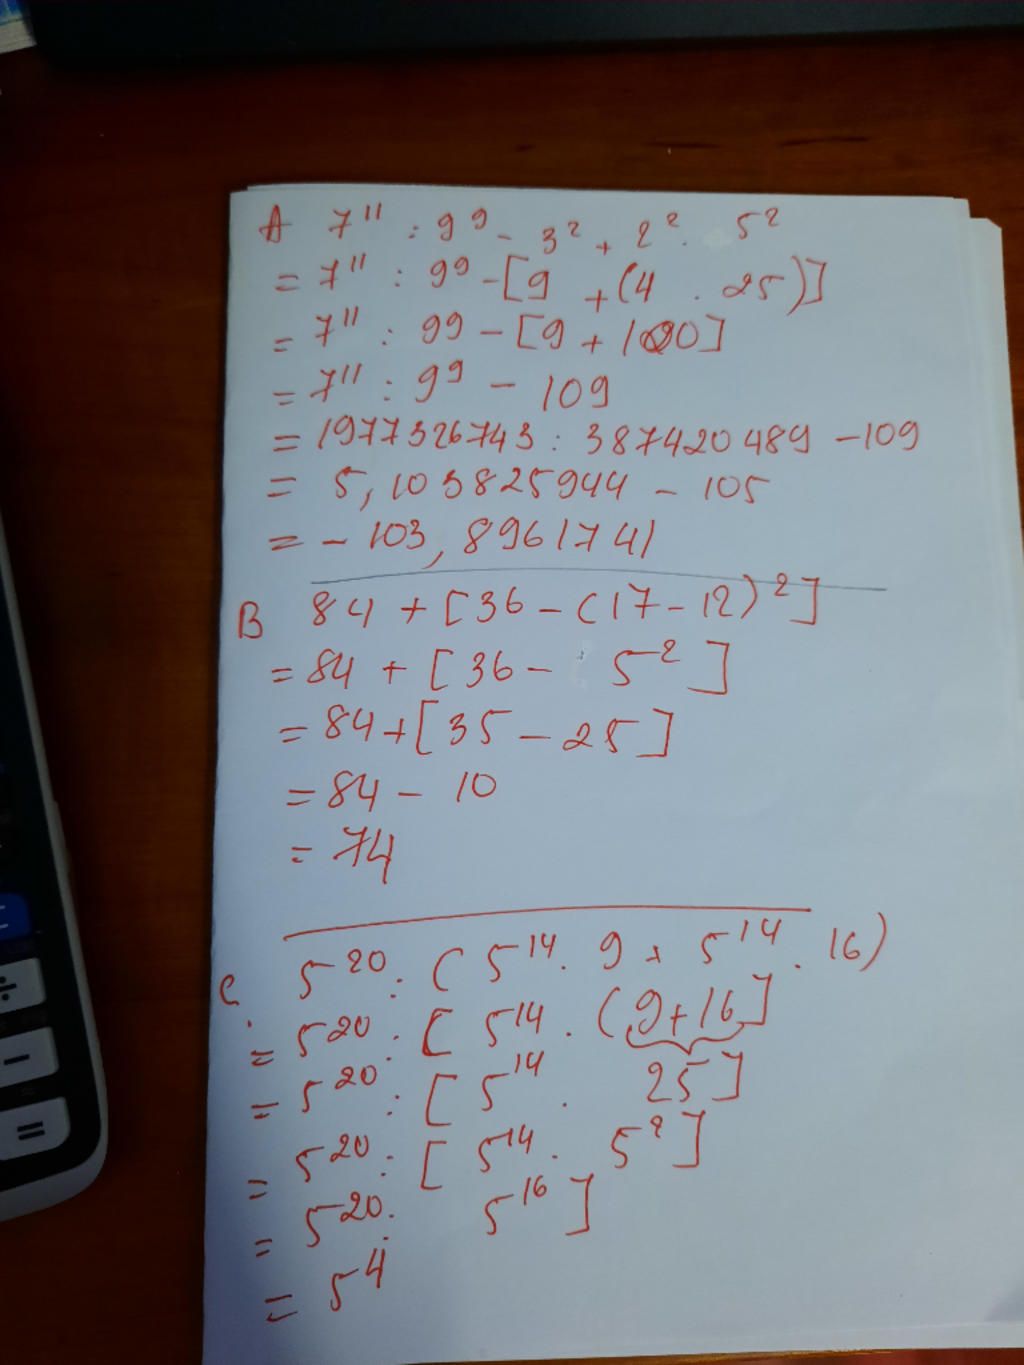 A 7¹¹ : 9⁹ - 3² + 2² . 5²
= 7¹¹ : 9⁹ - [9 + (4 . 25)]
= 7¹¹ : 9⁹ - [9 + 100]
= 7¹¹ : 9⁹ - 109
= 1977326743 : 387420489 - 109
= 5,103825944 - 105
= - 103,8961741
B 84 + [36 - (17 - 12)²]
= 84 + [36 - 5²]
= 84 + [35 - 25]
= 84 - 10
= 74
C. 5²⁰ : (5¹⁴ . 9 + 5¹⁴ . 16)
= 5²⁰ : [5¹⁴ . (9 + 16]
= 5²⁰ : [5¹⁴ . 25]
= 5²⁰ : [5¹⁴ . 5²]
= 5²⁰ : 5¹⁶]
= 5⁴